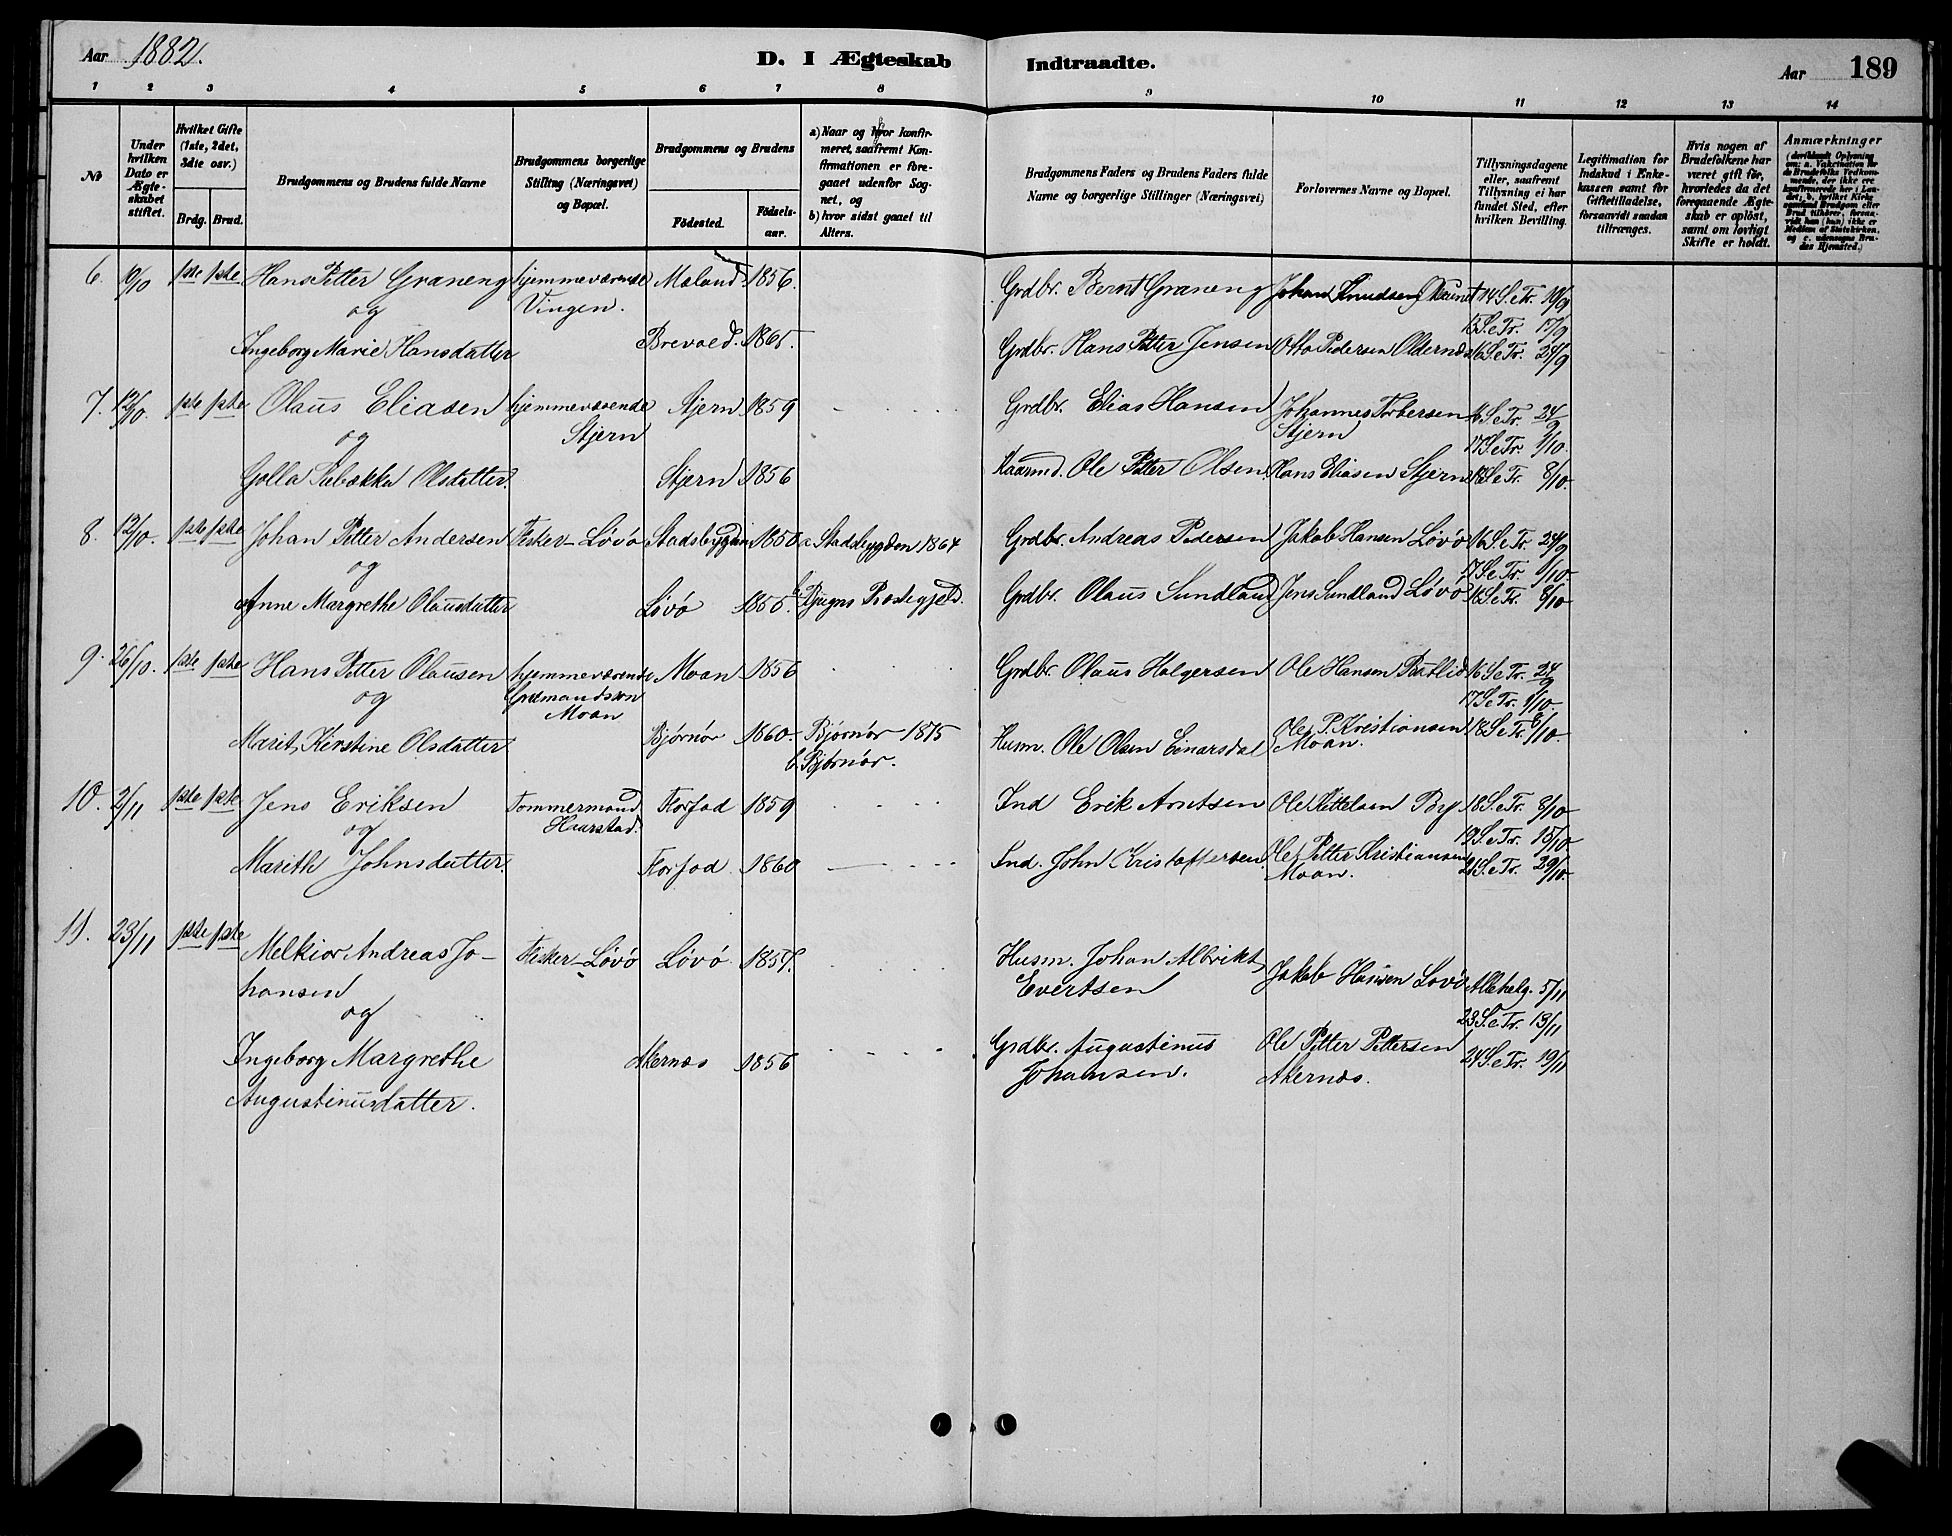 Aar 1882.
D. I Ægteskab Indtraadte.
Aar 189
1 2 3 4 5 6 7 8 9 10 11 12 13 14
No
Under hvilken Dato er Ægteskabet stiftet.
Hvilket Gifte (1ste, 2det, 3die osv.)
Brdg. Brud.
Brudgommens og Brudens fulde Navne
Brudgommens borgerlige Stilling (Næringsvei) og Bopæl.
Brudgommens og Brudens
Födested.
Födselsaar.
a) Naar og hvor konfirmeret, saafremt Konfirmationen er foregaaet udenfor Sognet, og
b) hvor sidst gaaet til Alters.
Brudgommens Faders og Brudens Faders fulde Navne og borgerlige Stillinger (Næringsvei)
Forlovernes Navne og Bopæl.
Tillysningsdagene eller, saafremt Tillysning ei har fundet Sted, efter hvilken Bevilling.
Legitimation for Indskud i Enkekassen samt for Giftetilladelse, forsaavidt saadan tiltrænges.
Hvis nogen af Brudefolkene har været gift för, hvorledes da det foregaaende Ægteskab er oplöst, samt om lovligt Skifte er holdt.
Anmærkninger
6. 1ste 1ste Hans Petter Graneng hjemmeværende Maland 1856. Grdbr. Bernt Graneng Johan Knudsen 14 S.e.Tr. 10/9
og Vingen. 15 S.e.Tr. 17/9
Ingeborg Marie Hansdatter Brevold. 1865. Grdbr. Hans Petter Jensen Otto Pedersen Oldernæs 16 S.e.Tr. 24/9
7. 12/10. 1ste 1ste Olaus Eliasen hjemmeværende Stjern 1859 Grdbr. Elias Hansen Johannes Torbersen 16 S.e.Tr. 24/9
og Stjern Stjern 17 S.e.Tr. 1/10.
Golla Rebækka Olsdatter. Stjern 1856 Kaarmd. Ole Petter Olsen Hans Eliasen Stjern 18 S.e.Tr. 8/10.
8. 12/10. 1ste 1ste Johan Petter Andersen Fisker - Løvø Stadsbygden 1850 a Stadsbygden 1864 Grdbr. Andreas Pedersen Jakob Hansen Løvø 16 S.e.Tr. 24/9
og 17 S.e.Tr. 1/10.
Anne Margrethe Olausdatter Løvø 1855. b. Bjugns Præstegjeld. Grdbr. Olaus Sundland Jens Sundland Løvø 18 S.e.Tr. 8/10
9. 26/10. 1ste 1ste Hans Petter Olausen hjemmeværende Moan 1856 Grdbr. Olaus Holgersen Ole Hansen 16 S.e.Tr. 24/9
og Grdmandssøn Moan 17 S.e.Tr. 1/10.
Marit Kerstine Olsdatter Bjørnør 1860. Bjørnør 1875 Husm. Ole Olsen Einarsdal Ole P. Kristiansen 18 S.e.Tr. 8/10.
b. Bjørnør. Moan.
10. 2/11 1ste 1ste Jens Eriksen Tømmermand Forfod 1859 Ind Erik Arntsen Ole Kittelsen By 18 S.e.Tr. 8/10
og Haarstad. 19 S.e.Tr. 15/10
Marith Johnsdatter. Forfod 1860 Ind. John Kristoffersen Ole Petter Kristiansen 21 S.e.Tr. 29/10.
Moan.
11. 23/11 1ste 1ste Melkior Andreas Jo- Fisker - Løvø Løvø 1857. Husm. Johan Albrikt Jakob Hansen Løvø Allehelg. 5/11
hansen Evertsen
og 23 S.e.Tr. 13/11
Ingeborg Margrethe Akernæs 1856 Grdbr. Augustinus Ole Petter Pettersen 24 S.e.Tr. 19/11
Augustinusdatter. Johansen. Akernæs.